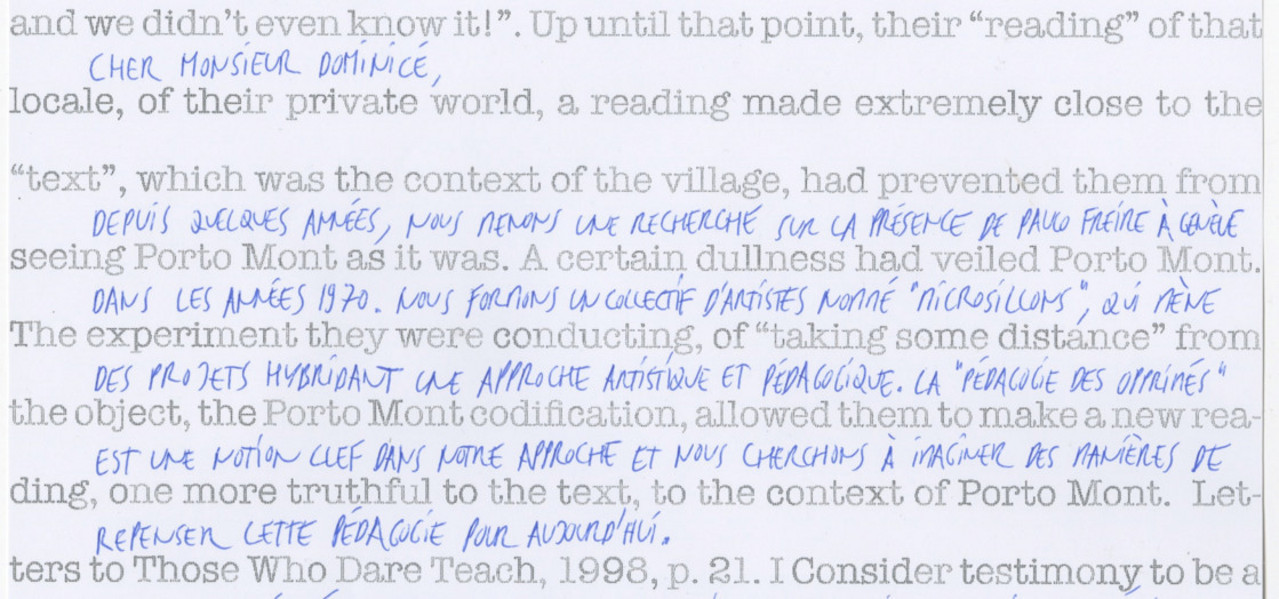 and we didn't even know it!”. Up until that point, their “reading” of that
CHER MONSIEUR DOMINICÉ,
locale, of their private world, a reading made extremely close to the
“text”, which was the context of the village, had prevented them from
DEPUIS QUELQUES ANNÉES, NOUS MENONS UNE RECHERCHE SUR LA PRÉSENCE DE PAULO FREIRE À GENÈVE
seeing Porto Mont as it was. A certain dullness had veiled Porto Mont.
DANS LES ANNÉES 1970. NOUS FORMONS UN COLLECTIF D'ARTISTES NOMMÉ "MICROSILLONS", QUI MÈNE
The experiment they were conducting, of “taking some distance” from
DES PROJETS HYBRIDANT UNE APPROCHE ARTISTIQUE ET PÉDAGOGIQUE. LA "PÉDAGOGIE DES OPPRIMÉS"
the object, the Porto Mont codification, allowed them to make a new rea-
EST UNE NOTION CLEF DANS NOTRE APPROCHE ET NOUS CHERCHONS À IMAGINER DES MANIÈRES DE
ding, one more truthful to the text, to the context of Porto Mont. Let-
REPENSER CETTE PÉDAGOGIE POUR AUJOURD'HUI.
ters to Those Who Dare Teach, 1998, p. 21. I Consider testimony to be a